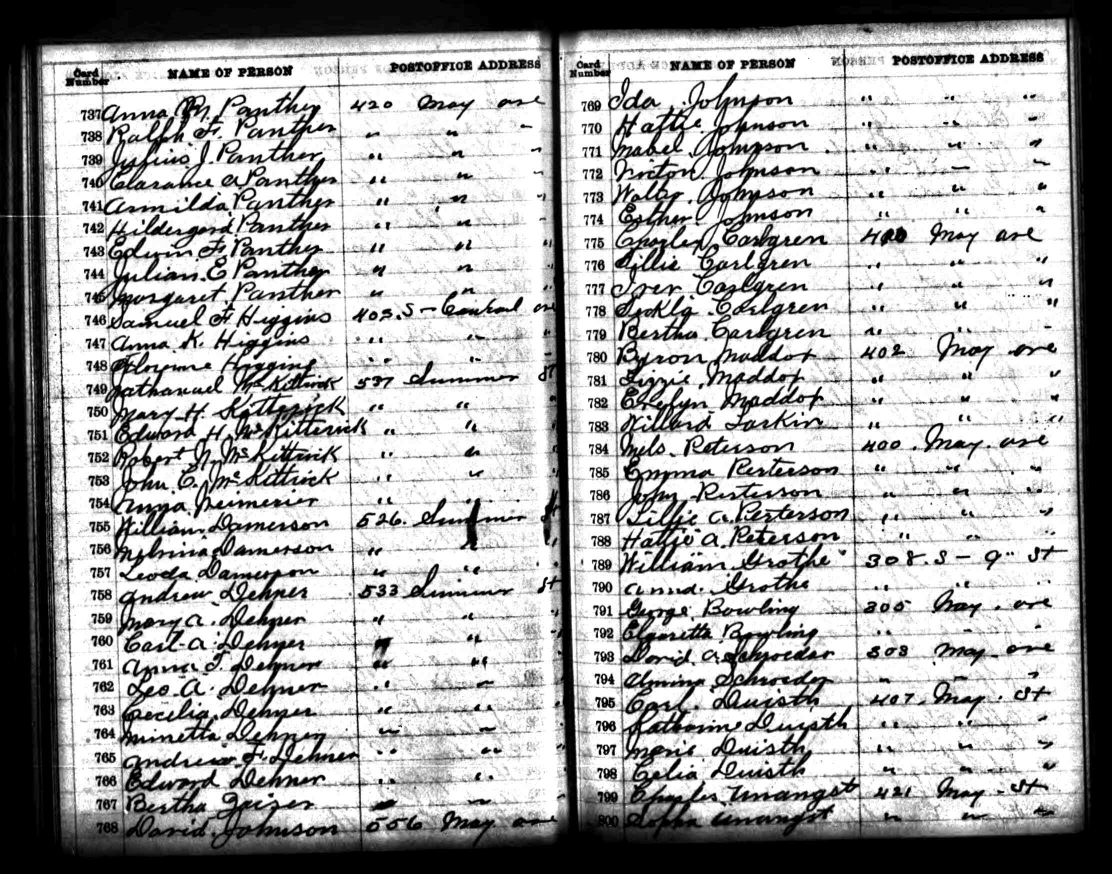 Card Number NAME OF PERSON POSTOFFICE ADDRESS
737 Anna M. Panther 420 May ave
738 Ralph F. Panther " " "
739 Julius J. Panther " " "
740 Clarance A Panther " " "
741 Armilda Panther " " "
742 Hildergard Panther " "
743 Edwin F. Panther " " "
744 Julian E Panther " " "
745 Margaret Panther " " "
746 Samuel F. Higgins 403. S - Central ave
747 Anna K. Higgins " " "
748 Florence Higgins " " "
749 Nathanuel McKittrick 537 Summer St
750 Mary H. " " "
751 Edward H. McKitterick " "
752 Robert N. McKittrick " " "
753 John C. McKittrick " " "
754 Anna Neimerier " "
755 William Damerson 526. Summer St
756 Melvina Damerson " "
757 Leoda Damerson " "
758 Andrew Dehner 533 Summer St
759 Mary A. Dehner " " "
760 Carl A. Dehner " " "
761 Anna T. Dehner " "
762 Leo A. Dehner " "
763 Cecelia Dehner " "
764 Minetta Dehner " "
765 Andrew F. Dehner " "
766 Edward Dehner " "
767 Bertha Zaiser " "
768 David Johnson 556 May ave
Card Number NAME OF PERSON POSTOFFICE ADDRESS
769 Ida Johnson " " "
770 Hattie Johnson " " "
771 Mabel Johnson " " "
772 Johnson " " "
773 Walter Johnson " " "
774 Esther Johnson " " "
775 Charles Carlgren 400 May ave
776 Lillie Carlgren " " "
777 Iver Carlgren " " "
778 Carlgren " " "
779 Bertha Carlgren " " "
780 Byron Maddox 402 May ave
781 Lizzie Maddox " " "
782 Evelyn Maddox " " "
783 Willard Larkin " " "
784 Nels Peterson 400 May ave
785 Emma Perterson " " "
786 John Perterson " " "
787 Lillie A. Perterson " " "
788 Hattie A. Peterson " " "
789 William Grothe 308. S - 9" St
790 Anna Grothe " " "
791 George Bowling 305 May ave
792 Bowling " " "
793 David A Schroeder 303 May ave
794 Schroeder " " "
795 Carl Duisth 407 May St
796 Katherine Duisth " " "
797 Marie Duisth " " "
798 Celia Duisth " " "
799 Charles Unangst 421 May St
800 Unangst " " "